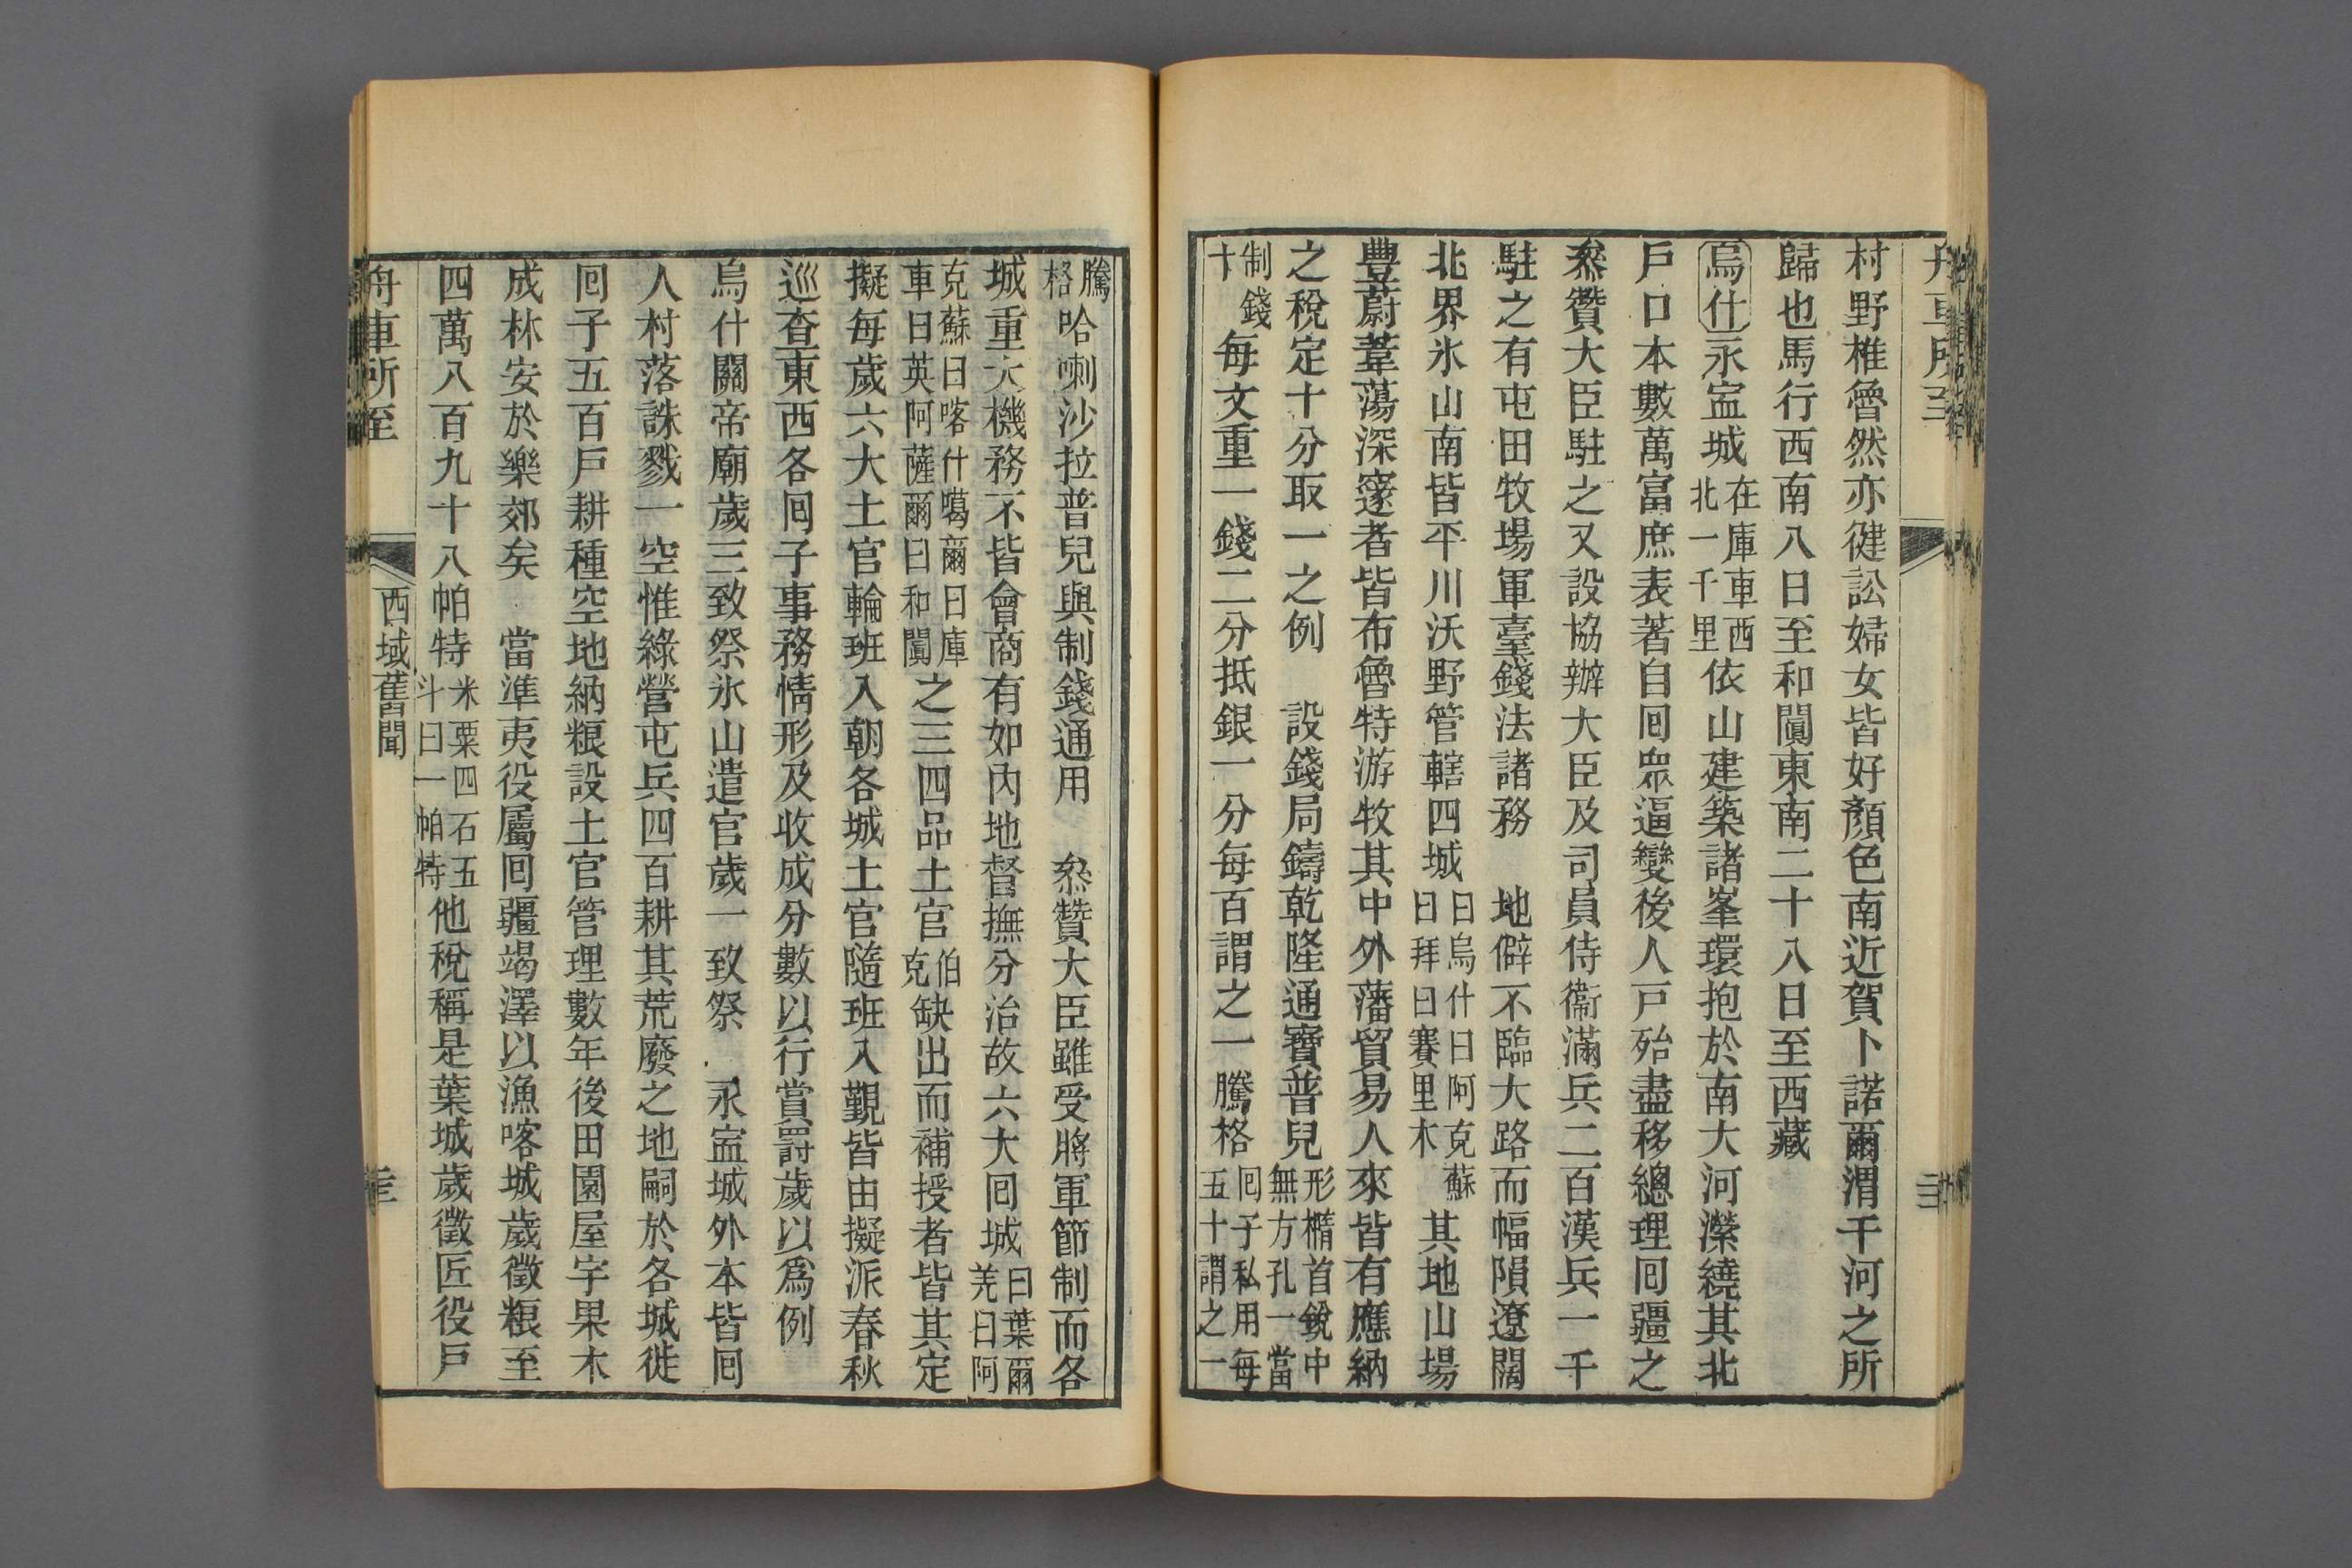 村野椎魯然亦健訟婦女皆好顏色南近賀卜諾爾渭干河之所
歸也馬行西南八日至和闐東南二十八日至西藏
烏什永寍城在庫車西北一千里依山建築諸峯環抱於南大河濴繞其北
戶口本數萬富庶表著自囘眾逼變後人戸殆盡移總理囘疆之
叅贊大臣駐之又設協辦大臣及司員侍衞滿兵二百漢兵一千
駐之有屯田牧場軍臺錢法諸務　地僻不臨大路而幅隕遼闊
北界氷山南皆平川沃野管轄四城曰烏什曰阿克蘇曰拜曰賽里木其地山場
豐蔚葦蕩深邃者皆布魯特游牧其中外藩貿易人來皆有應納
之稅定十分取一之例　設錢局鑄乾隆通寶普兒形橢首銳中無方孔一當
制錢十每文重一錢二分抵銀一分每百謂之一騰格囘子私用每五十謂之一
騰格哈喇沙拉普兒與制錢通用　叅贊大臣雖受將軍節制而各
城重大機務不皆會商有如內地督撫分治故六大囘城曰葉爾羌曰阿
克蘇曰喀什噶爾曰庫車曰英阿薩爾曰和闐之三四品土官伯克缺出而補授者皆其定
擬每歲六大土官輪班入朝各城土官隨班入覲皆由擬派春秋
巡查東西各囘子事務情形及收成分數以行賞罰歲以爲例
烏什關帝廟歲三致祭氷山遣官歲一致祭　永寍城外本皆囘
人村落誅戮一空惟綠營屯兵四百耕其荒廢之地嗣於各城徙
囘子五百戶耕種空地納粮設土官管理數年後田園屋宇果木
成林安於樂郊矣　當準夷役屬囘疆竭澤以漁喀城歲徵粮至
四萬八百九十八帕特米粟四石五斗曰一帕特他稅稱是葉城歲徵匠役戶
舟車所至
西域舊聞